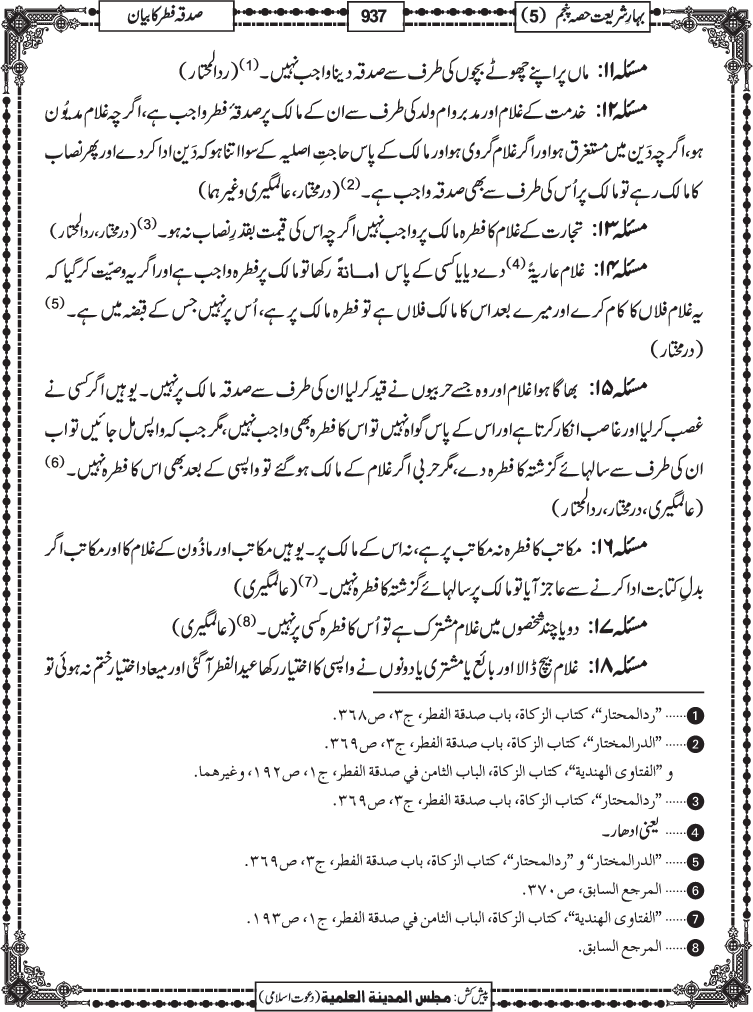 بہارِ شریعت حصہ پنجم (5)
937
صدقہ فطر کا بیان
مسئلہ ۱۱: ماں پر اپنے چھوٹے بچوں کی طرف سے صدقہ دینا واجب نہیں۔(1) (ردالمحتار)
مسئلہ ۱۲: خدمت کے غلام اور مدبر و ام ولد کی طرف سے ان کے مالک پر صدقۂ فطر واجب ہے، اگرچہ غلام مدیُون
ہو، اگرچہ دَین میں مستغرق ہو اور اگر غلام گروی ہو اور مالک کے پاس حاجتِ اصلیہ کے سوا اتنا ہو کہ دَین ادا کردے اور پھر نصاب
کا مالک رہے تو مالک پر اُس کی طرف سے بھی صدقہ واجب ہے۔(2) (درمختار، عالمگیری وغیرہما)
مسئلہ ۱۳: تجارت کے غلام کا فطرہ مالک پر واجب نہیں اگرچہ اس کی قیمت بقدرِ نصاب نہ ہو۔(3) (درمختار، ردالمحتار)
مسئلہ ۱۴: غلام عاریۃً(4) دے دیا یا کسی کے پاس امانۃً رکھا تو مالک پر فطرہ واجب ہے اور اگر یہ وصیّت کر گیا کہ
یہ غلام فلاں کا کام کرے اور میرے بعد اس کا مالک فلاں ہے تو فطرہ مالک پر ہے، اُس پر نہیں جس کے قبضہ میں ہے۔(5)
(درمختار)
مسئلہ ۱۵: بھاگا ہوا غلام اور وہ جسے حربیوں نے قید کرلیا ان کی طرف سے صدقہ مالک پر نہیں۔ یوہیں اگر کسی نے
غصب کرلیا اور غاصب انکار کرتا ہے اور اس کے پاس گواہ نہیں تو اس کا فطرہ بھی واجب نہیں، مگر جب کہ واپس مل جائیں تو اب
ان کی طرف سے سالہائے گزشتہ کا فطرہ دے، مگر حربی اگر غلام کے مالک ہوگئے تو واپسی کے بعد بھی اس کا فطرہ نہیں۔(6)
(عالمگیری، درمختار، ردالمحتار)
مسئلہ ۱۶: مکاتب کا فطرہ نہ مکاتب پر ہے، نہ اس کے مالک پر۔ یوہیں مکاتب اور ماذُون کے غلام کا اور مکاتب اگر
بدلِ کتابت ادا کرنے سے عاجز آیا تو مالک پر سالہائے گزشتہ کا فطرہ نہیں۔(7) (عالمگیری)
مسئلہ ۱۷: دو یا چند شخصوں میں غلام مشترک ہے تو اُس کا فطرہ کسی پر نہیں۔(8) (عالمگیری)
مسئلہ ۱۸: غلام بیچ ڈالا اور بائع یا مشتری یا دونوں نے واپسی کا اختیار رکھا عیدالفطر آگئی اور میعاد اختیار ختم نہ ہوئی تو
1 ...... ”ردالمحتار“، کتاب الزکاة، باب صدقة الفطر، ج٣، ص٣٦٨.
2 ...... ”الدرالمختار“، کتاب الزکاة، باب صدقة الفطر، ج٣، ص٣٦٩.
و ”الفتاوی الهندية“، کتاب الزکاة، الباب الثامن في صدقة الفطر، ج١، ص١٩٢، وغيرهما.
3 ...... ”ردالمحتار“، کتاب الزکاة، باب صدقة الفطر، ج٣، ص٣٦٩.
4 ...... یعنی ادھار۔
5 ...... ”الدرالمختار“ و ”ردالمحتار“، کتاب الزکاة، باب صدقة الفطر، ج٣، ص٣٦٩.
6 ...... المرجع السابق، ص٣٧٠.
7 ...... ”الفتاوی الهندية“، کتاب الزکاة، الباب الثامن في صدقة الفطر، ج١، ص١٩٣.
8 ...... المرجع السابق.
پیش کش: مجلس المدینة العلمیة (دعوت اسلامی)